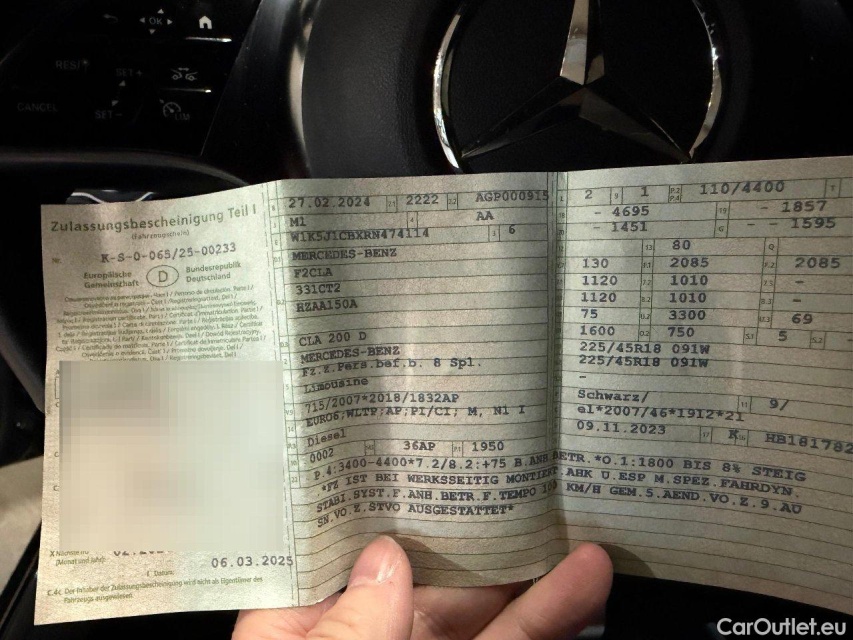 OK
RES/+
SET+
CANCEL
SET-
LIM
Zulassungsbescheinigung Teil I
(Fahrzeugschein)
Nr. K-S-0-065/25-00233
Europäische Gemeinschaft
D
Bundesrepublik Deutschland
06.03.2025
(Monat und Jahr)
Datum
C.4c Der Inhaber der Zulassungsbescheinigung wird nicht als Eigentümer des
Fahrzeugs ausgewiesen.
27.02.2024 2222 AGP000915
M1 AA
W1K5J1CBXRN474114 6
MERCEDES-BENZ
F2CLA
331CT2
RZAA150A
CLA 200 D
MERCEDES-BENZ
Fz.z.Pers.bef.b. 8 Spl.
Limousine
715/2007*2018/1832AP
EURO6;WLTP;AP;PI/CI; M, N1 I
Diesel
0002 36AP 1950
2 1 110/4400
- 4695 - 1857
- 1451 - 1595
80
130 2085 2085
1120 1010 -
1120 1010 -
75 3300 69
1600 750 5
225/45R18 091W
225/45R18 091W
-
Schwarz/ 9/
e1*2007/46*1912*21
09.11.2023 K HB181782
P.4:3400-4400*7.2/8.2:+75 B.ANH BETR.*O.1:1800 BIS 8% STEIG
*FZ IST BEI WERKSSEITIG MONTIERT AHK U.ESP M.SPEZ.FAHRDYN.
STABI.SYST.F.ANH.BETR.F.TEMPO KM/H GEM.5.AEND.VO.Z.9.AU
SN.VO Z.STVO AUSGESTATTET*
CarOutlet.eu